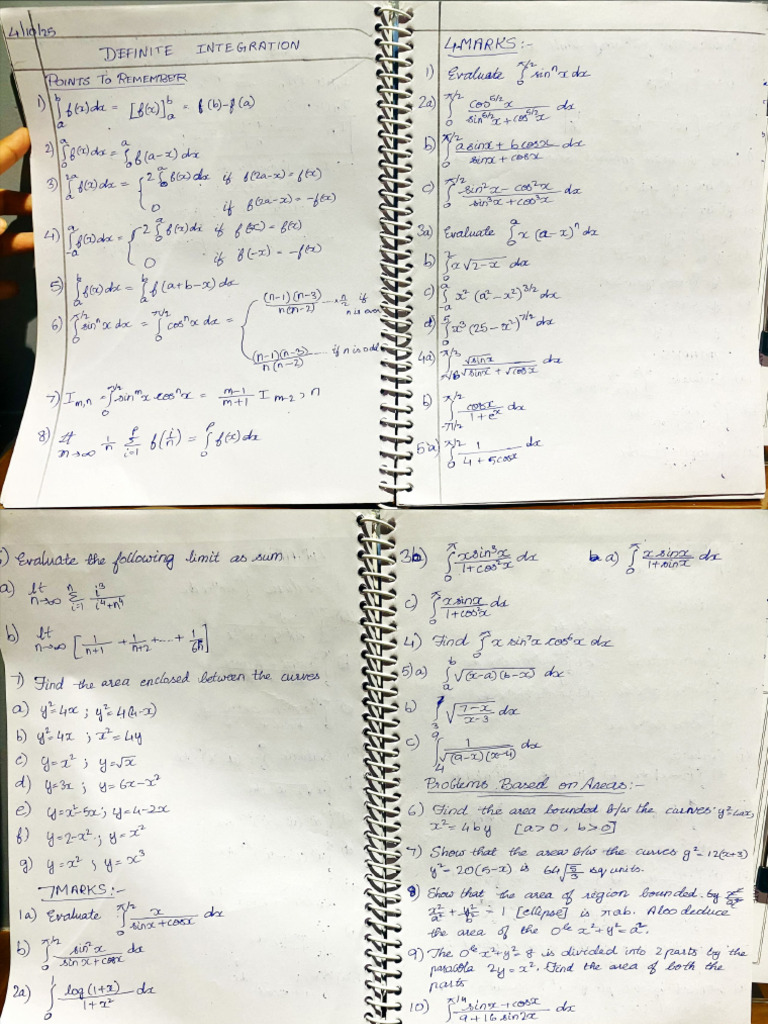 4/10/25
DEFINITE INTEGRATION
POINTS TO REMEMBER
1) ∫_a^b f(x)dx = [f(x)]_a^b = f(b)-f(a)
2) ∫_0^a f(x)dx = ∫_0^a f(a-x)dx
3) ∫_0^{2a} f(x)dx = { 2∫_0^a f(x)dx if f(2a-x)=f(x)
0 if f(2a-x)=-f(x)
4) ∫_{-a}^a f(x)dx = { 2∫_0^a f(x)dx if f(-x)=f(x)
0 if f(-x)=-f(x)
5) ∫_a^b f(x)dx = ∫_a^b f(a+b-x)dx
6) ∫_0^{π/2} sin^n x dx = ∫_0^{π/2} cos^n x dx = { (n-1)(n-3)/n(n-2) ..... if n is even
(n-1)(n-3)/n(n-2) ..... if n is odd
7) I_{m,n} = ∫_0^{π/2} sin^m x cos^n x = (m-1)/(m+1) I m-2, n
8) lt n→∞ 1/n Σ_{i=1}^p f(i/n) = ∫_0^p f(x)dx
4MARKS:-
1) Evaluate ∫_0^{π/2} sin^n x dx
2a) ∫_0^{π/2} cos^{5/2}x / (sin^{5/2}x + cos^{5/2}x) dx
b) ∫_0^{π/2} (a sinx + b cosx)/(sinx + cosx) dx
c) ∫_0^{π/2} (sin²x - cos²x)/(sin³x + cos³x) dx
3a) Evaluate ∫_0^a x (a-x)^n dx
b) ∫_0^2 x√(2-x) dx
c) ∫_{-a}^a x² (a²-x²)^{3/2} dx
d) ∫_0^5 x³ (25-x²)^{7/2} dx
4a) ∫_{π/6}^{π/3} √sinx/(√sinx + √cosx) dx
b) ∫_{-π/2}^{π/2} cosx/(1+e^x) dx
5a) ∫_0^{π/2} 1/(4+5cosx) dx
6) Evaluate the following limit as sum
a) lt n→∞ Σ_{i=1}^n i³/(i⁴+n⁴)
b) lt n→∞ [1/(n+1) + 1/(n+2) + .... + 1/6n]
7) Find the area enclosed between the curves
a) y²=4x ; y²=4(4-x)
b) y²=4x ; x²=4y
c) y=x² ; y=√x
d) y=3x ; y=6x-x²
e) y=x²-5x ; y=4-2x
f) y=2-x² ; y=x²
g) y=x² ; y=x³
7MARKS:-
1a) Evaluate ∫_0^{π/2} x/(sinx+cosx) dx
b) ∫_0^{π/2} sin²x/(sinx+cosx) dx
2a) ∫_0^1 log(1+x)/(1+x²) dx
3b) ∫_0^π x sin³x/(1+cos²x) dx a) ∫_0^π x sinx/(1+sinx) dx
c) ∫_0^π x sinx/(1+cos²x) dx
4) Find ∫_0^π x sin⁷x cos⁶x dx
5)a) ∫_a^b √((x-a)(b-x)) dx
b) ∫_3^7 √((7-x)/(x-3)) dx
c) ∫_4^9 1/√((9-x)(x-4)) dx
Problems Based on Areas:-
6) Find the area bounded b/w the curves y²=4ax,
x²=4by [a>0, b>0]
7) Show that the area b/w the curves y²=12(x+3)
y²=20(5-x) is 64√(5/3) sq units.
8) Show that the area of region bounded by
x²/a² + y²/b² = 1 [ellipse] is πab. Also deduce
the area of the Ole x²+y²=a².
9) The Ole x²+y²=8 is divided into 2 parts by the
parabola 2y=x². Find the area of both the
parts
10) ∫_0^{π/4} (sinx+cosx)/(9+16 sin2x) dx